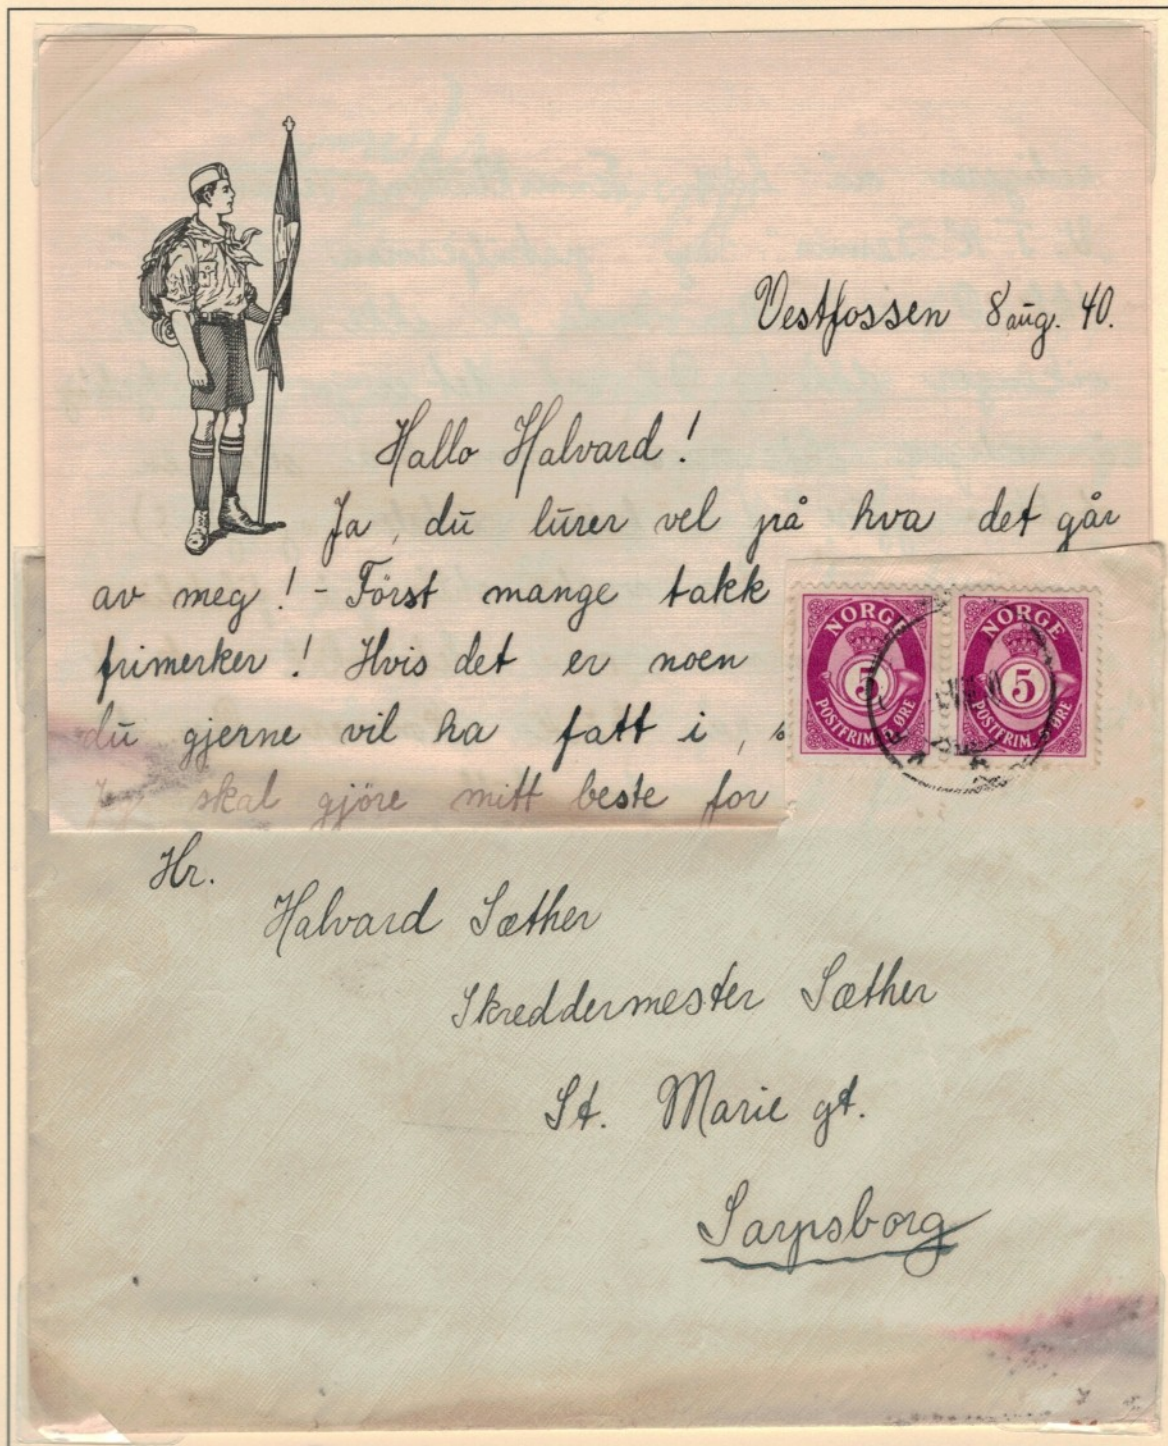 Vestfossen 8 aug. 40.
Hallo Halvard!
Ja, du lurer vel på hva det går
av meg! - Först mange takk
frimerker! Hvis det er noen
du gjerne vil ha fatt i, s
skal gjöre mitt beste for
NORGE
5
POSTFRIM. ØRE
NORGE
5
POSTFRIM. ØRE
Hr.
Halvard Sæther
Skreddermester Sæther
St. Marie gt.
Sarpsborg